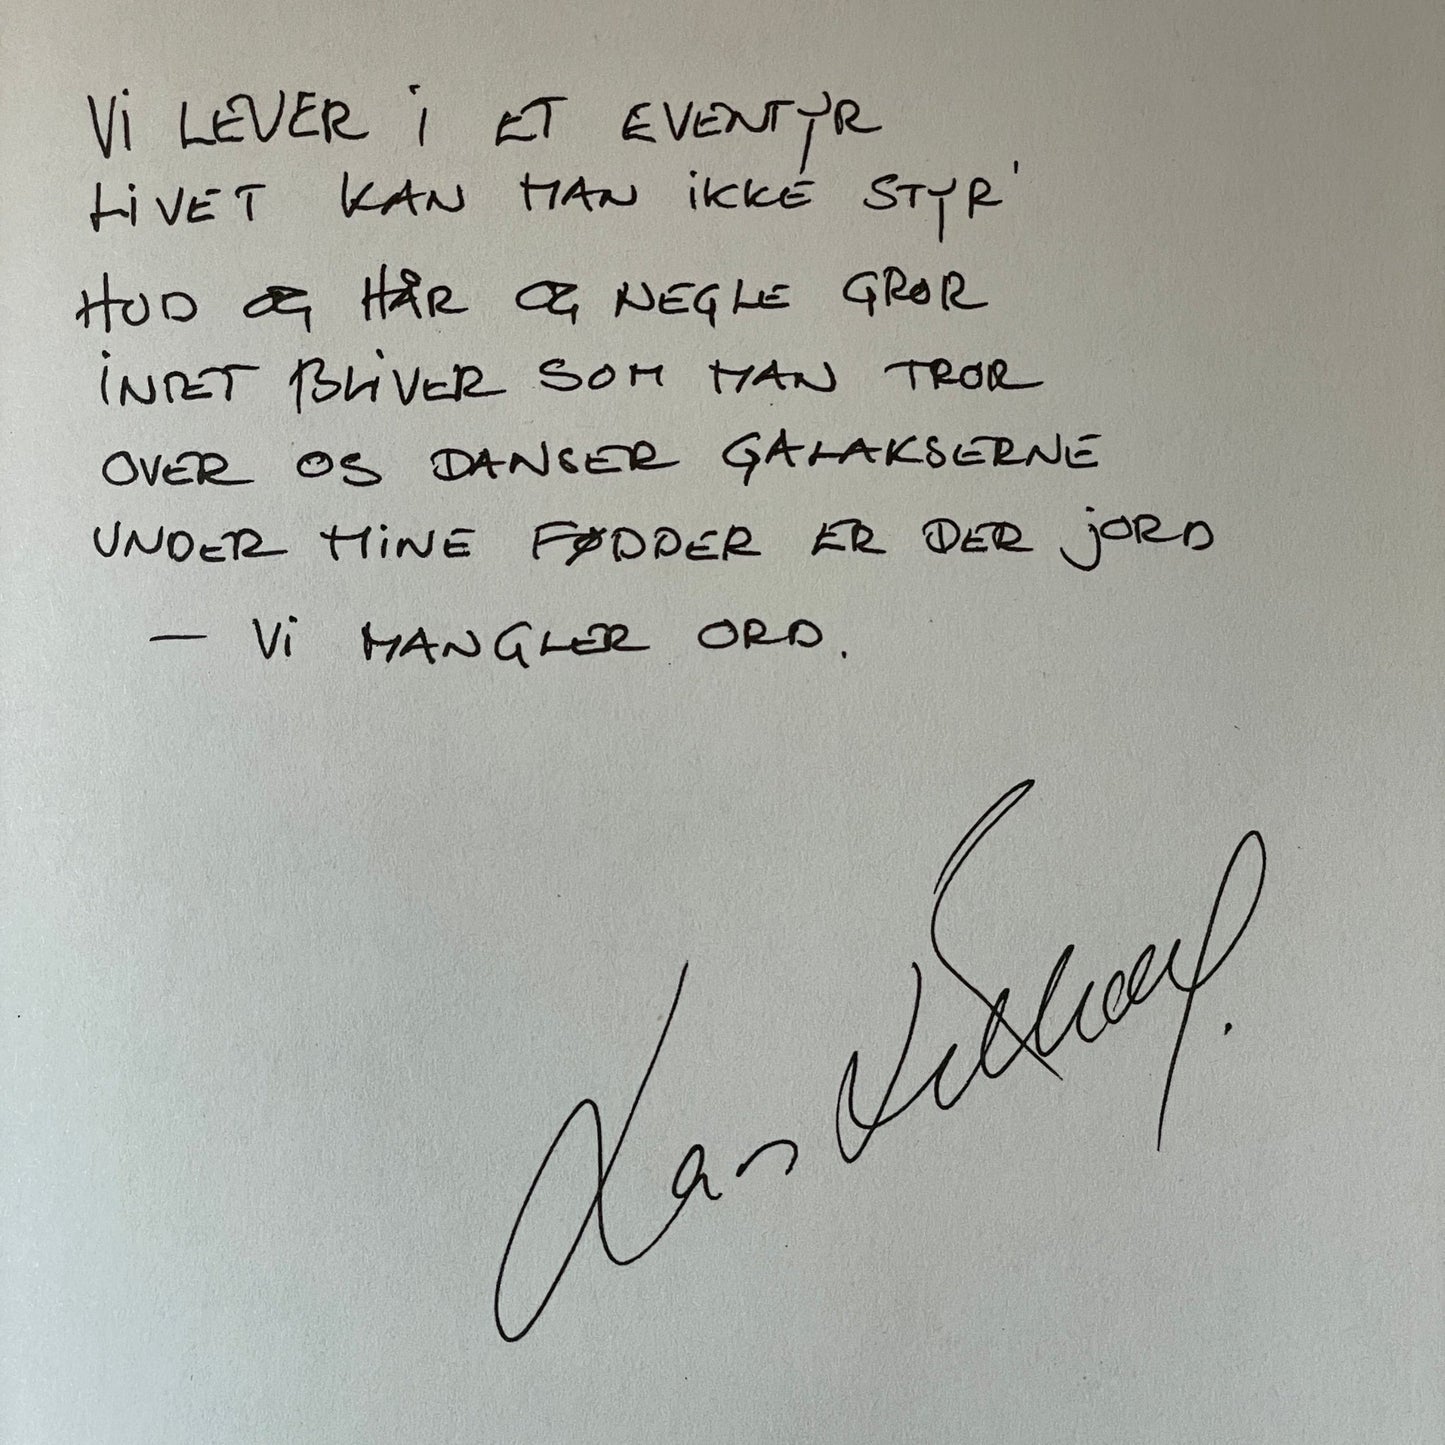 Vi LEVER i ET EVENTYR
LiVET KAN MAN iKKE STYR'
HUD OG HÅR OG NEGLE GROR
iNTET BLiVER SOM MAN TROR
OVER OS DANSER GALAKSERNE
UNDER MiNE FØDDER ER DER jORD
— Vi MANGLER ORD.
Lars